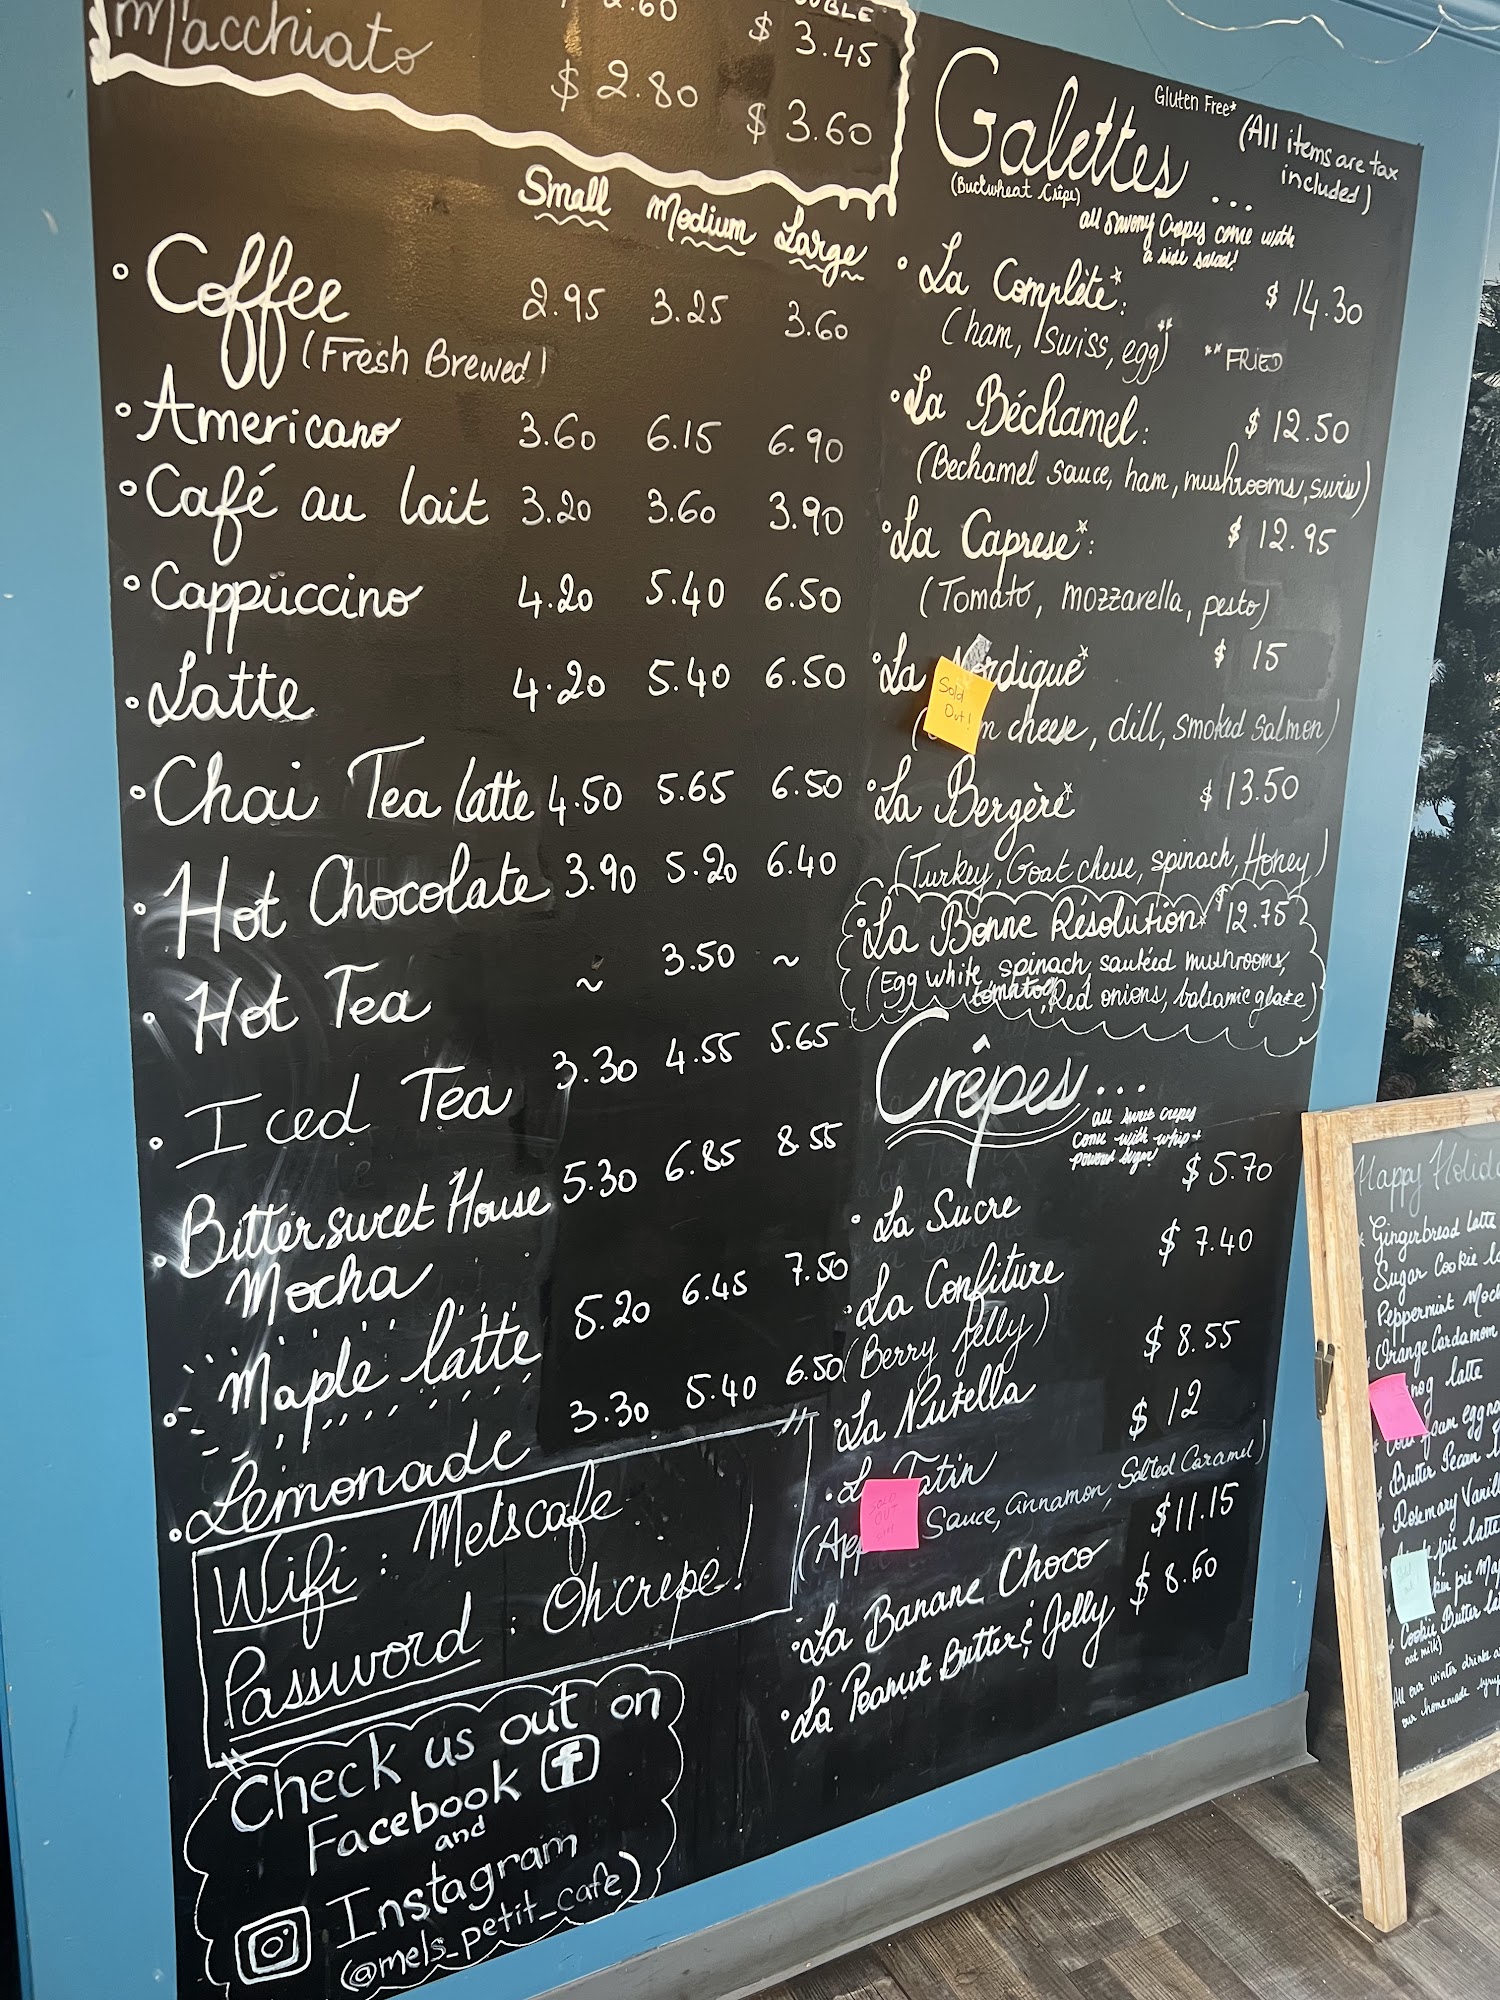 $ 2.60 $ 3.45
Macchiato $ 2.80 $ 3.60
Small Medium Large
Coffee 2.95 3.25 3.60
(Fresh Brewed)
Americano 3.60 6.15 6.90
Café au lait 3.20 3.60 3.90
Cappuccino 4.20 5.40 6.50
Latte 4.20 5.40 6.50
Chai Tea latte 4.50 5.65 6.50
Hot Chocolate 3.90 5.20 6.40
Hot Tea ~ 3.50 ~
Iced Tea 3.30 4.55 5.65
Bittersweet House 5.30 6.85 8.55
Mocha
Maple latte 5.20 6.45 7.50
Lemonade 3.30 5.40 6.50
Wifi : Melscafe
Password : Ohcrepe!
Check us out on
Facebook f
and
Instagram
@mels_petit_cafe)
Galettes...
Gluten Free*
(All items are tax
included)
(Buckwheat Crêpe)
all savory crepes come with
a side salad!
La Complète*: $ 14.30
(ham, swiss, egg)** **FRIED
La Béchamel: $ 12.50
(Bechamel sauce, ham, mushrooms, swiss)
La Caprese*: $ 12.95
(Tomato, mozzarella, pesto)
La Nordique* $ 15
Sold
Out!
cheese, dill, smoked salmon)
La Bergère* $ 13.50
(Turkey, Goat cheese, spinach, Honey)
La Bonne Résolution* $ 12.75
(Egg white, spinach, sautéed mushrooms,
tomatoe, Red onions, balsamic glaze)
Crêpes...
all sweet crepes
come with whip +
powder sugar!
La Sucre $ 5.70
La Confiture $ 7.40
(Berry Jelly)
La Nutella $ 8.55
La Tatin $ 12
SOLD
OUT
Sauce, cinnamon, Salted Caramel)
La Banane Choco $11.15
La Peanut Butter & Jelly $ 8.60
Happy Holid
Gingerbread latte
Sugar Cookie la
Peppermint Moch
Orange Cardamom
nog latte
foam eggno
Butter Pecan l
Rosemary Vanill
pie latte
pie Map
Cookie Butter lat
oat milk)
All our winter drinks a
our homemade syrup